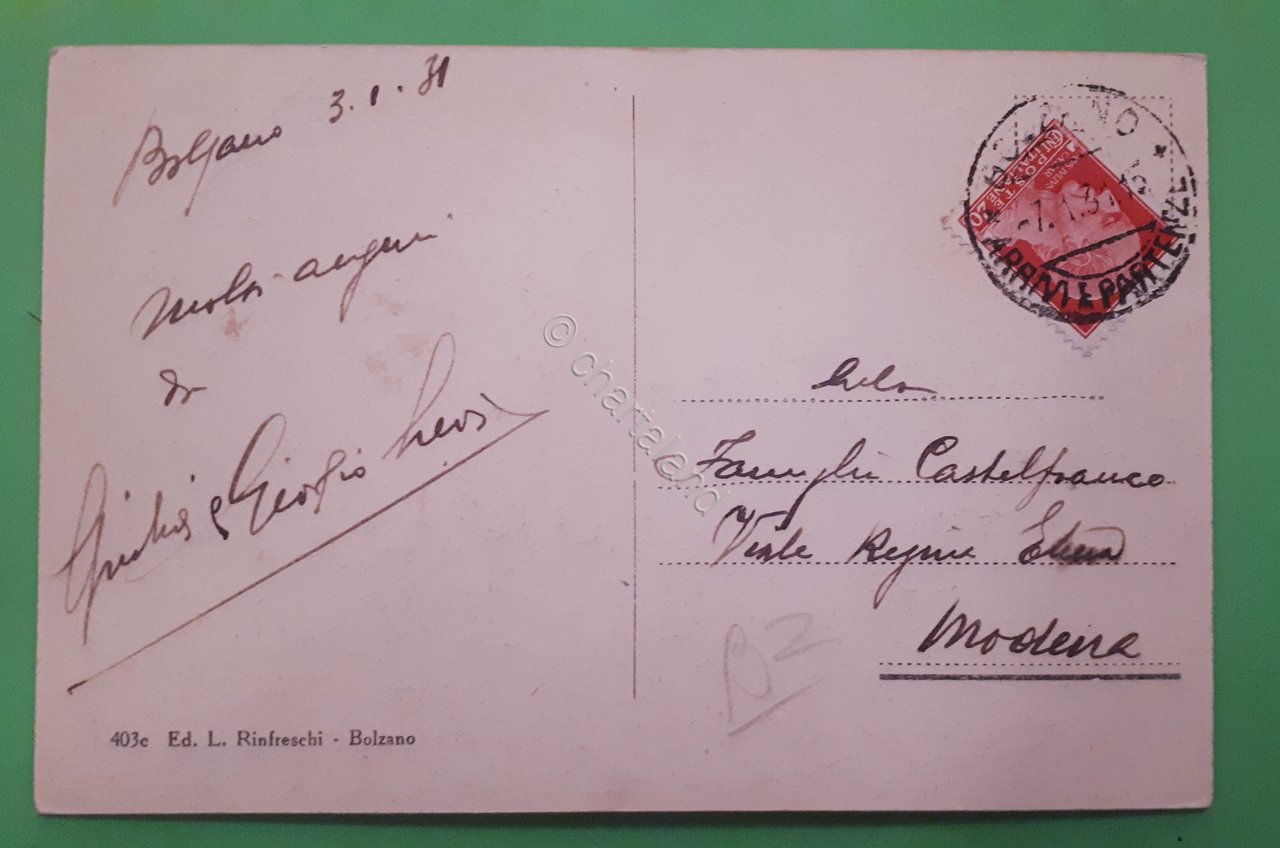 Bolzano 3.1.31
molti auguri
da
Giulia e Giorgio Levi
403c Ed. L. Rinfreschi - Bolzano
BOLZANO
-7.1.31
ARRIVI E PARTENZE
POSTE ITALIANE
CENT 20
Famiglia Castelfranco
Viale Regina Elena
Modena
© chartaland